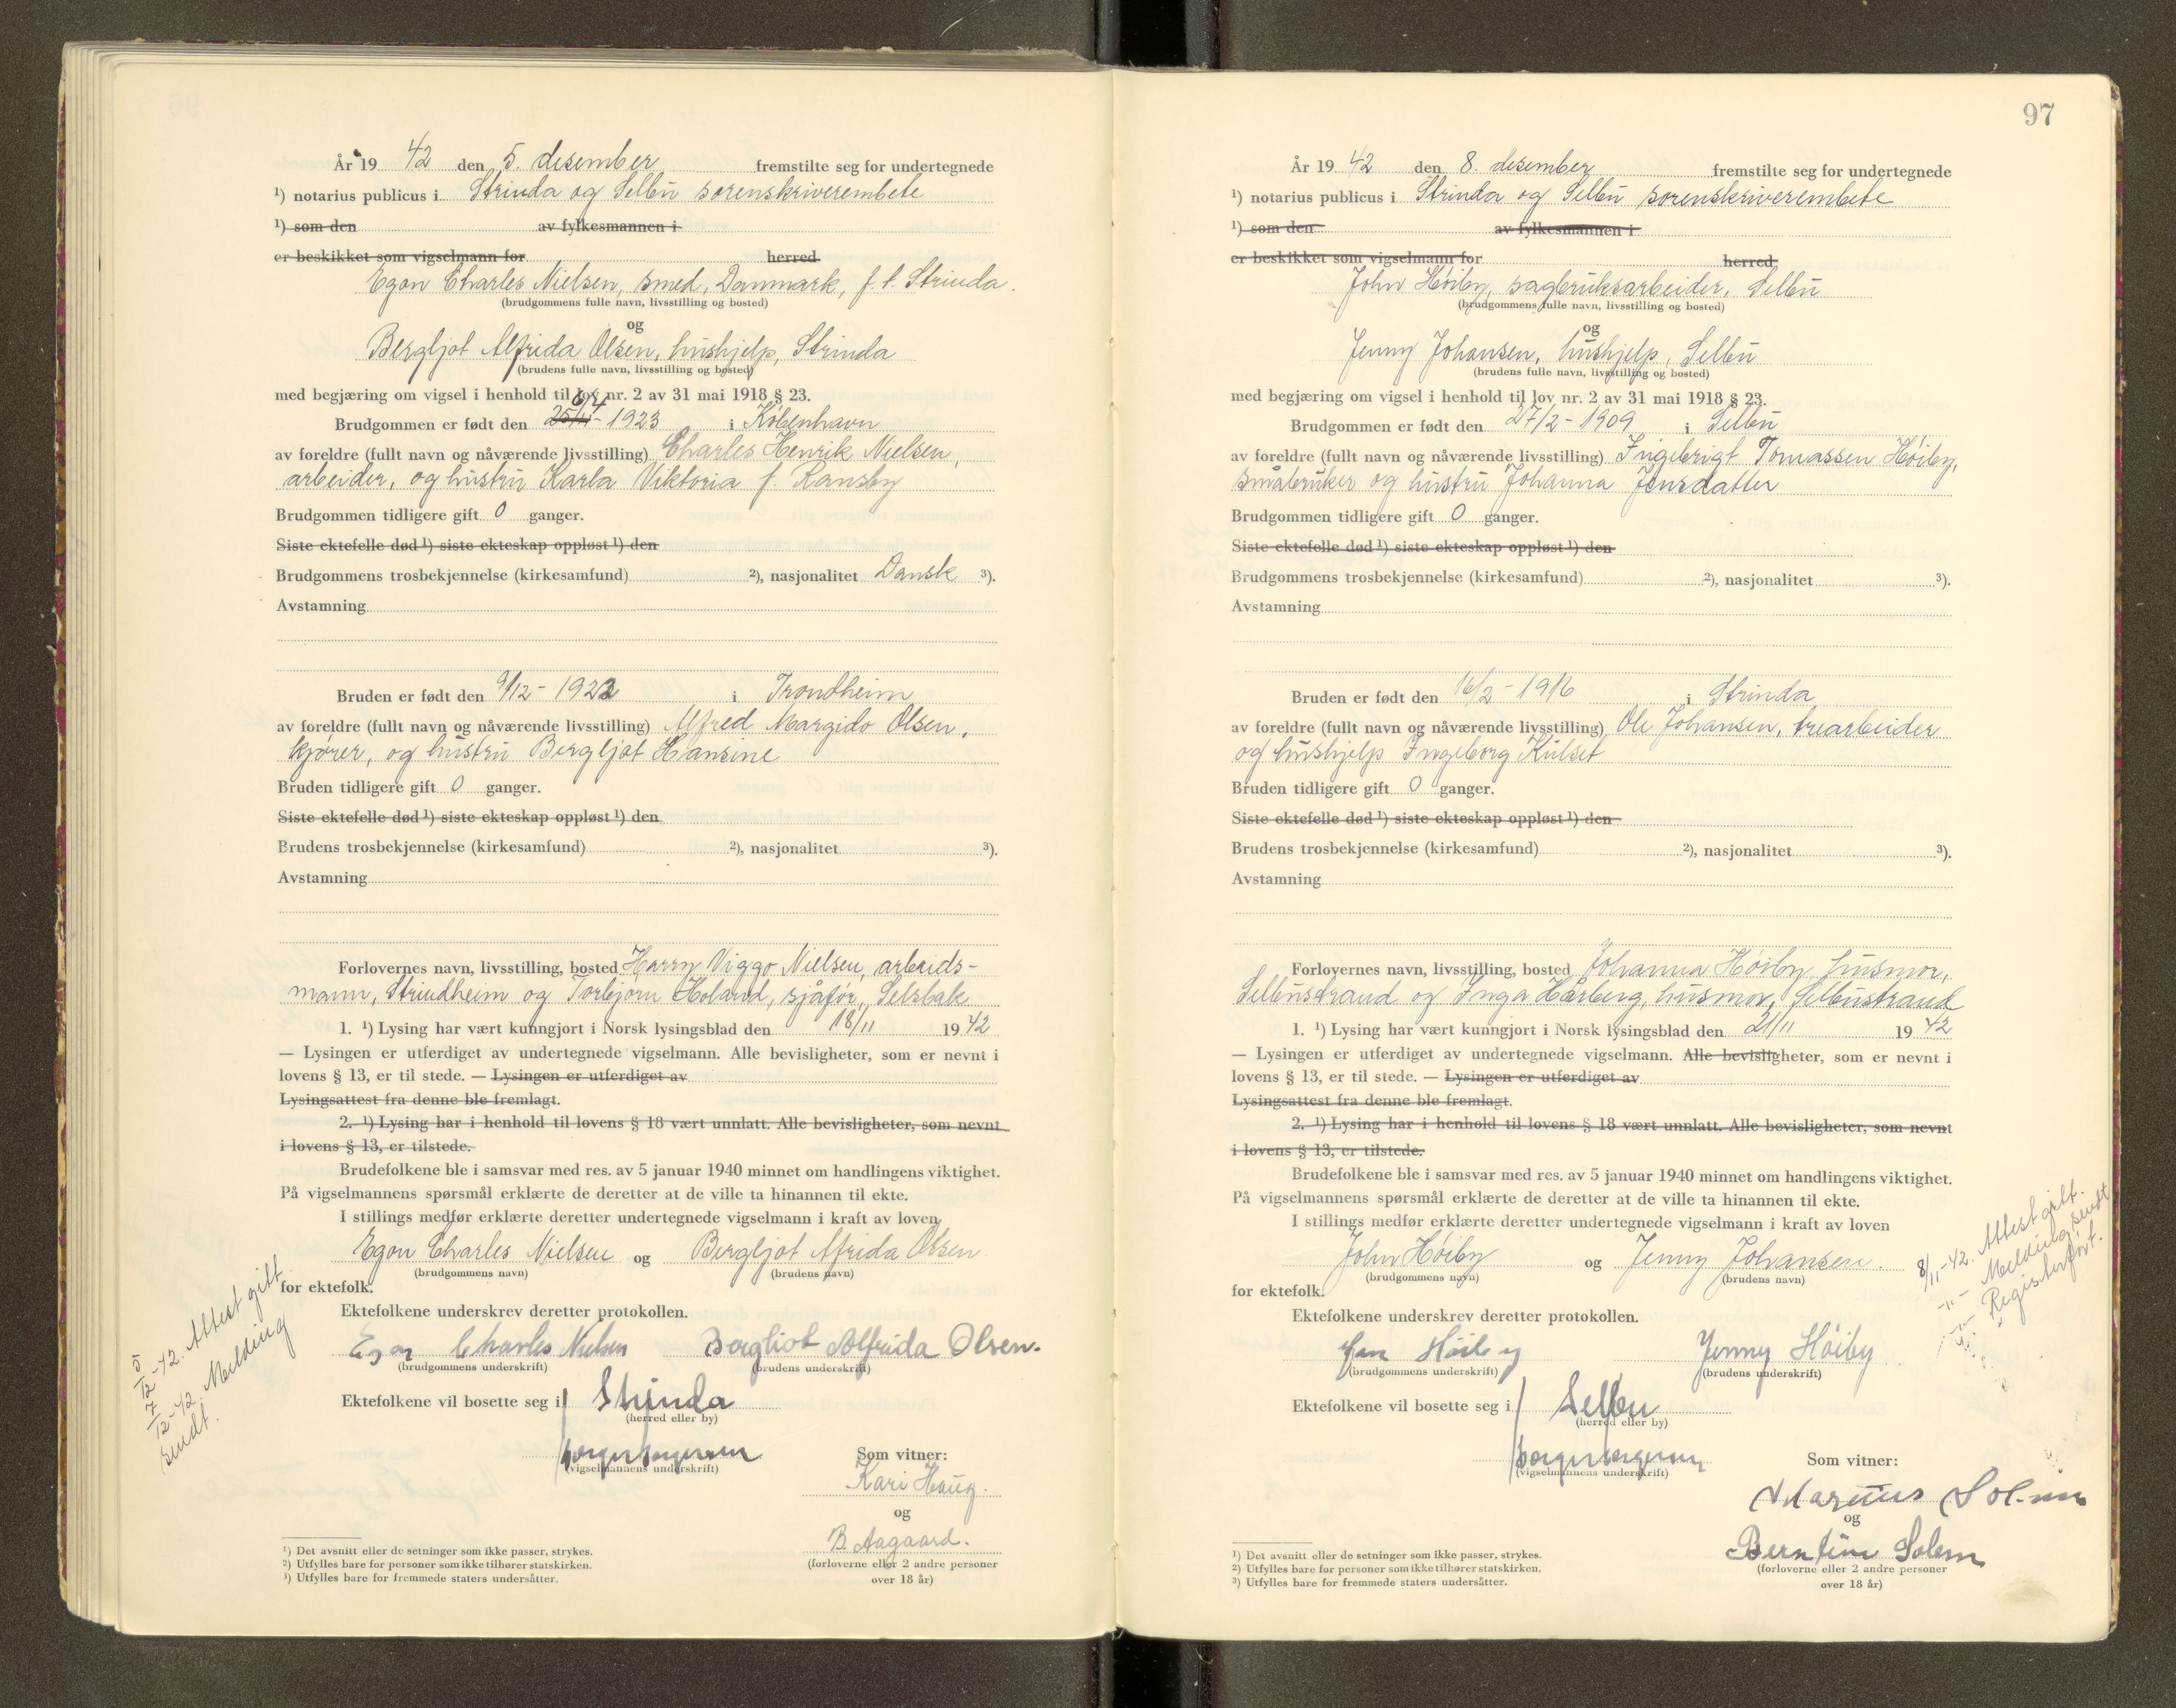 År 19 42 den 5. desember fremstilte seg for undertegnede
¹) notarius publicus i Strinda og Selbu sorenskriverembete
¹) som den av fylkesmannen i
er beskikket som vigselmann for herred
Egon Charles Nielsen, smed, Danmark, f. t. Strinda.
(brudgommens fulle navn, livsstilling og bosted)
og
Bergljot Alfrida Olsen, hushjelp, Strinda
(brudens fulle navn, livsstilling og bosted)
med begjæring om vigsel i henhold til lov nr. 2 av 31 mai 1918 § 23.
6/4
Brudgommen er født den 1923 i København
av foreldre (fullt navn og nåværende livsstilling) Charles Henrik Nielsen,
arbeider, og hustru Karla Viktoria f. Ransby
Brudgommen tidligere gift 0 ganger.
Siste ektefelle død ¹) siste ekteskap oppløst ¹) den
Brudgommens trosbekjennelse (kirkesamfund) ²), nasjonalitet Dansk ³).
Avstamning
Bruden er født den 9/12 - 1922 i Trondheim
av foreldre (fullt navn og nåværende livsstilling) Alfred Margido Olsen,
kjører, og hustru Bergljot Hansine
Bruden tidligere gift 0 ganger.
Siste ektefelle død ¹) siste ekteskap oppløst ¹) den
Brudens trosbekjennelse (kirkesamfund) ²), nasjonalitet ³).
Avstamning
Forlovernes navn, livsstilling, bosted Harry Viggo Nielsen, arbeids-
mann, Strindheim og Torbjørn Holand, sjåfør, Selsbak
1. ¹) Lysing har vært kunngjort i Norsk lysingsblad den 18/11 19 42
— Lysingen er utferdiget av undertegnede vigselmann. Alle bevisligheter, som er nevnt i
lovens § 13, er til stede. — Lysingen er utferdiget av
Lysingsattest fra denne ble fremlagt.
2. ¹) Lysing har i henhold til lovens § 18 vært unnlatt. Alle bevisligheter, som nevnt
i lovens § 13, er tilstede.
Brudefolkene ble i samsvar med res. av 5 januar 1940 minnet om handlingens viktighet.
På vigselmannens spørsmål erklærte de deretter at de ville ta hinannen til ekte.
I stillings medfør erklærte deretter undertegnede vigselmann i kraft av loven
Egon Charles Nielsen og Bergljot Afrida Olsen
(brudgommens navn) (brudens navn)
for ektefolk.
Ektefolkene underskrev deretter protokollen.
Egon Charles Nielsen Bergliot Alfrida Olsen.
(brudgommens underskrift) (brudens underskrift)
Ektefolkene vil bosette seg i Strinda
(herred eller by)
(vigselmannens underskrift)
Som vitner:
Kari Haug.
og
B. Aagaard.
(forloverne eller 2 andre personer
over 18 år)
5/12-42. Attest gitt.
7/12-42. Melding
sendt.
¹) Det avsnitt eller de setninger som ikke passer, strykes.
²) Utfylles bare for personer som ikke tilhører statskirken.
³) Utfylles bare for fremmede staters undersåtter.
97
År 19 42 den 8. desember fremstilte seg for undertegnede
¹) notarius publicus i Strinda og Selbu sorenskriverembete
¹) som den av fylkesmannen i
er beskikket som vigselmann for herred.
John Høiby, sagbruksarbeider, Selbu
(brudgommens fulle navn, livsstilling og bosted)
og
Jenny Johansen, hushjelp, Selbu
(brudens fulle navn, livsstilling og bosted)
med begjæring om vigsel i henhold til lov nr. 2 av 31 mai 1918 § 23.
Brudgommen er født den 27/2 - 1909 i Selbu
av foreldre (fullt navn og nåværende livsstilling) Ingebrigt Tomassen Høiby,
småbruker og hustru Johanna Jensdatter
Brudgommen tidligere gift 0 ganger.
Siste ektefelle død ¹) siste ekteskap oppløst ¹) den
Brudgommens trosbekjennelse (kirkesamfund) ²), nasjonalitet ³).
Avstamning
Bruden er født den 16/2 - 1916 i Strinda
av foreldre (fullt navn og nåværende livsstilling) Ole Johansen, trearbeider
og hushjelp Ingeborg Kulset
Bruden tidligere gift 0 ganger.
Siste ektefelle død ¹) siste ekteskap oppløst ¹) den
Brudens trosbekjennelse (kirkesamfund) ²), nasjonalitet ³).
Avstamning
Forlovernes navn, livsstilling, bosted Johanna Høiby, husmor,
Selbustrand og Inga Hårberg, husmor, Selbustrand
1. ¹) Lysing har vært kunngjort i Norsk lysingsblad den 21/11 19 42
— Lysingen er utferdiget av undertegnede vigselmann. Alle bevisligheter, som er nevnt i
lovens § 13, er til stede. — Lysingen er utferdiget av
Lysingsattest fra denne ble fremlagt.
2. ¹) Lysing har i henhold til lovens § 18 vært unnlatt. Alle bevisligheter, som nevnt
i lovens § 13, er tilstede.
Brudefolkene ble i samsvar med res. av 5 januar 1940 minnet om handlingens viktighet.
På vigselmannens spørsmål erklærte de deretter at de ville ta hinannen til ekte.
I stillings medfør erklærte deretter undertegnede vigselmann i kraft av loven
John Høiby og Jenny Johansen.
(brudgommens navn) (brudens navn)
for ektefolk.
Ektefolkene underskrev deretter protokollen.
Høiby Jenny Høiby
(brudgommens underskrift) (brudens underskrift)
Ektefolkene vil bosette seg i Selbu
(herred eller by)
(vigselmannens underskrift)
Som vitner:
Marius
og
Berntine Solem
(forloverne eller 2 andre personer
over 18 år)
8/11-42. Attest gitt.
-"- Melding sendt
-"- Registerført.
¹) Det avsnitt eller de setninger som ikke passer, strykes.
²) Utfylles bare for personer som ikke tilhører statskirken.
³) Utfylles bare for fremmede staters undersåtter.